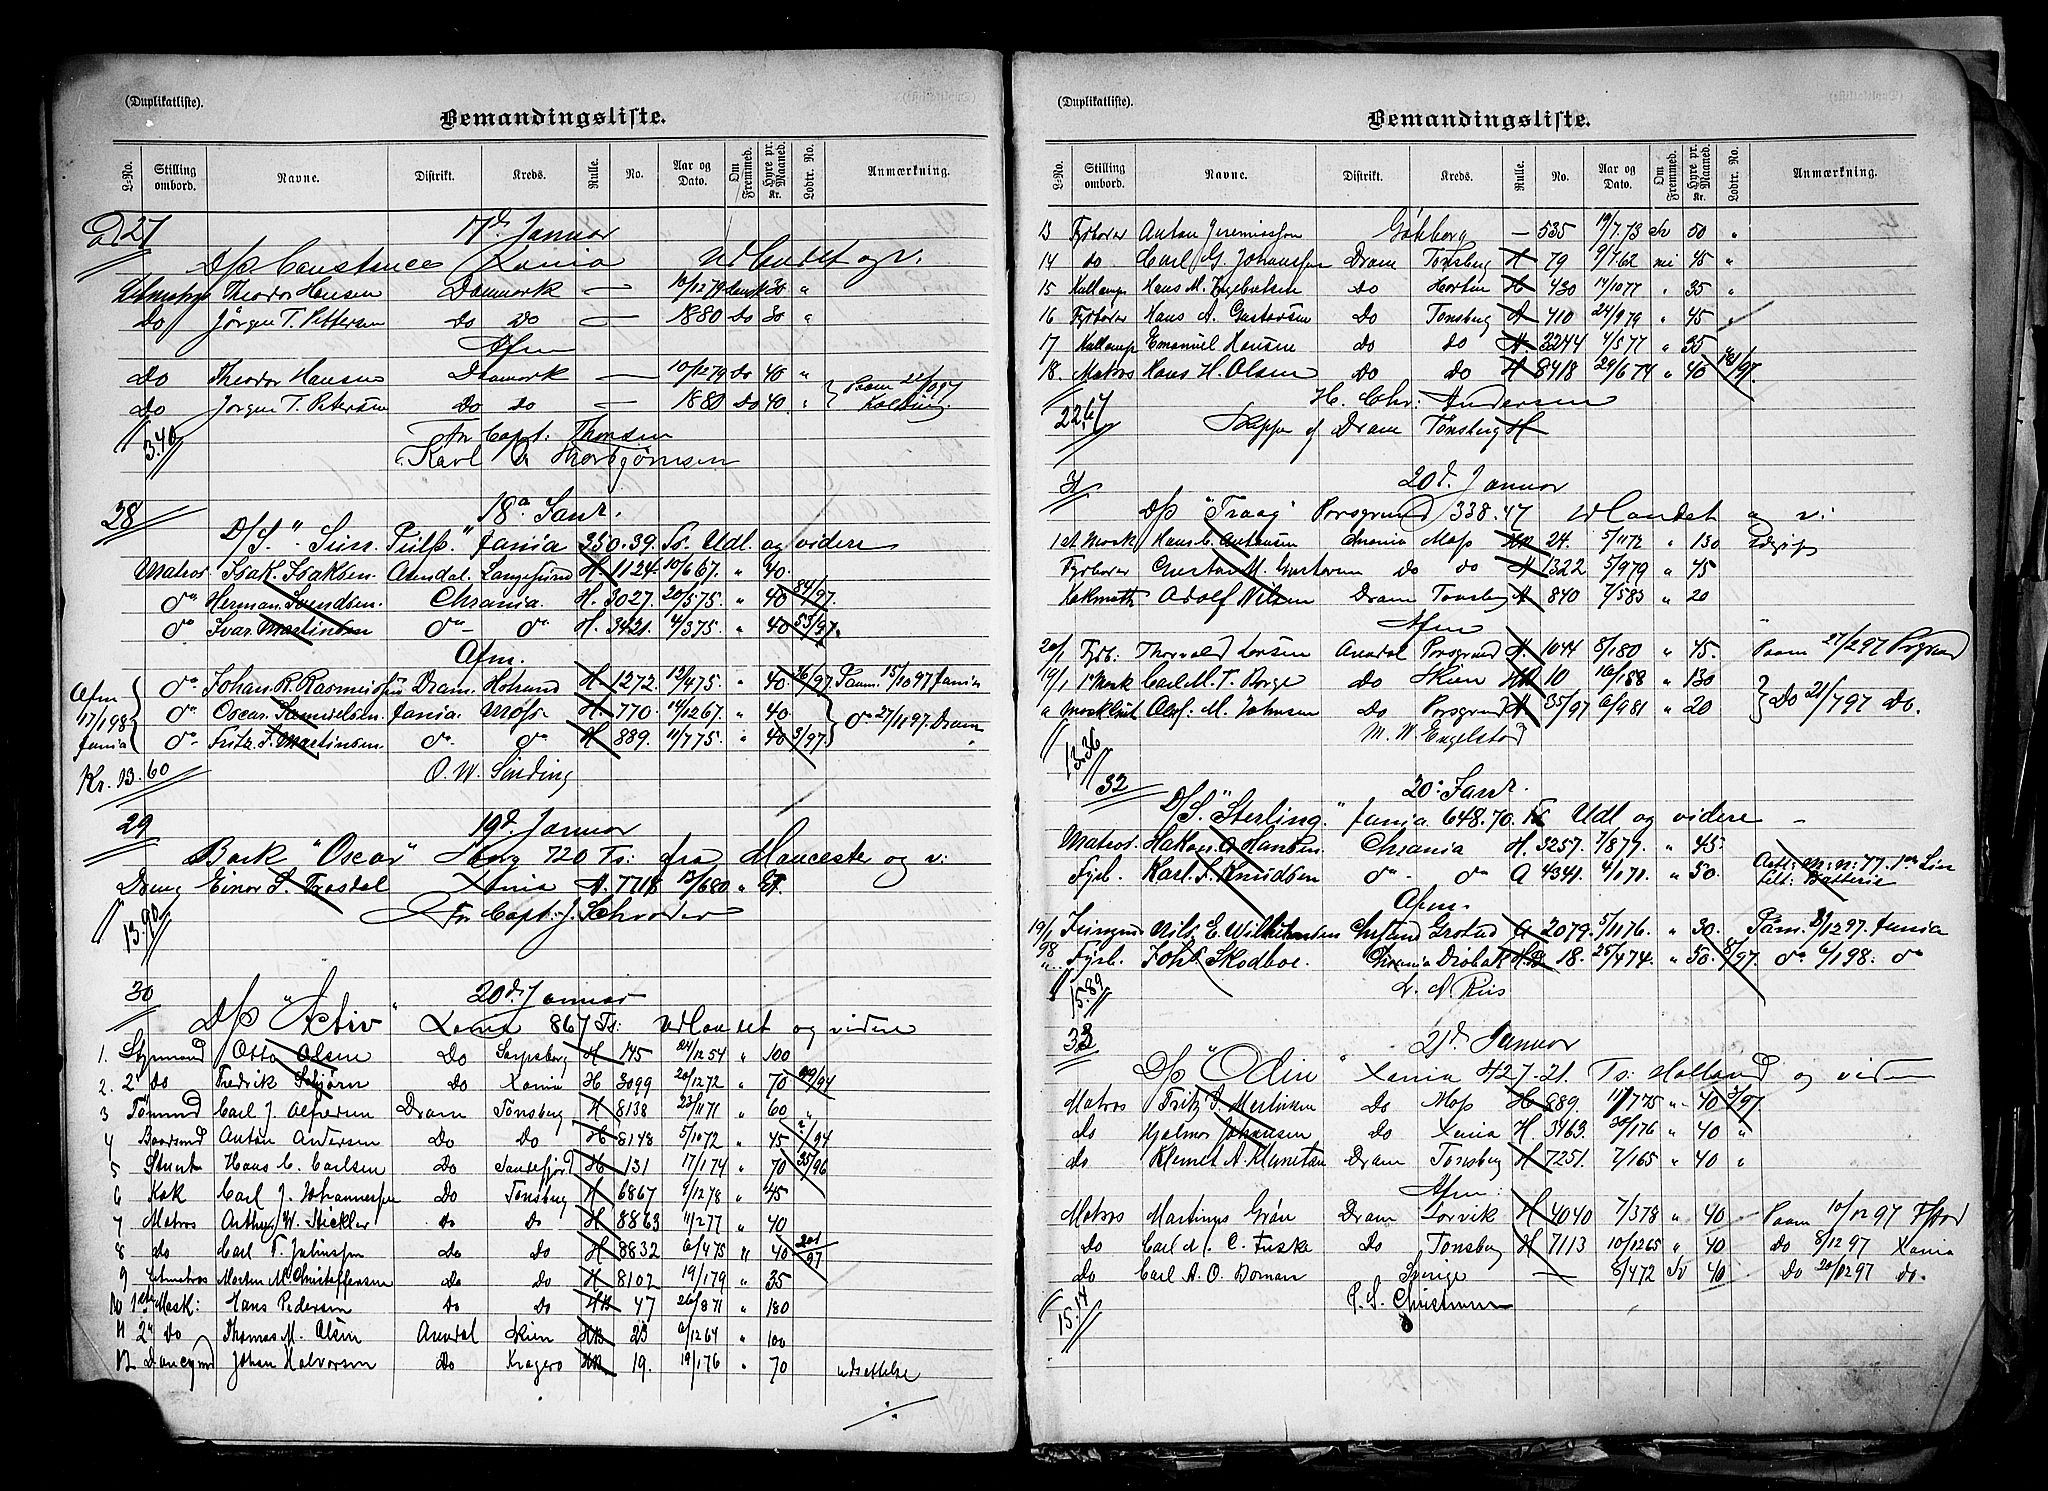 (Duplikatliste).
Bemandingsliste.
L-No. Stilling ombord. Navne. Distrikt. Kreds. Rulle. No. Aar og Dato. Om Fremmed. Hyre pr. Maaned. Kr. Lodtr. No. Anmærkning.
27 17de Januar
D/S Constance Xania Udlandet og v.
Theodor Hansen Danmark — 10/12 79 Dansk 30 "
Do Jörgen T. Pettersen Do Do — 1880 Do 30 "
Afm
Do Theodor Hansen Danmark — 10/12 79 Do 40 "
Do Jörgen T. Petersen Do Do — 1880 Do 40 "
3.40 For Capt. Thorsen
Karl Thorbjörnsen
28 18de Janr.
D/S. "Sun. Pulp." Xania 350.39. Ts. Udl. og videre
Matros Isak. Isaksen. Arendal. Langesund H 1124. 10/6 67. " 40.
do Herman Svendsen. Chrania. H. 3027. 20/5 75. " 40 84/97.
do Ivar Martinsen do do H. 3421. 4/3 75. " 40 53/97.
Afm.
Afm 17/1 98 Xania
do Johan R. Rasmussen Dram. Holmend H. 1272. 12/4 75. " 40 36/97 Paam. 15/10 97 Xania
do Oscar Samuelsen Xania. Moss. H. 770. 14/12 67. " 40.
do Fritz. S. Martinsen do do H 889. 11/7 75. " 40 3/97. do 27/11 97. Dram
Kr. 13.60 O. W. Sinding
29 19d. Januar
Bark "Oscar" 720 Ts: fra Mancester og v:
Einar S. Trosdal Xania A. 7718 13/6 80 "
13.90 For Capt. J. Schroder
30 20de Januar
D/S "Activ" Xania 867 Ts: Udlandet og videre
1. Styrmand Otto Olsen Do Sarpsborg H 145 24/12 54 " 100
2. 2' do Fredrik Schjörn Do Xania H 3099 20/12 72 " 70 99/94
3 Tömmd Carl J. Alfredsen Dram Tönsberg H 8138 23/11 71 " 60 "
4 Baadsmd Anton Andersen Do Do H 8148 5/10 72 " 45 2/94
5 Stuert Hans C. Carlsen Do Sandefjord H 131 17/1 74 " 70 35/96
6 Kok Carl J. Johannessen Do Tönsberg H 6867 8/12 78 " 45
7 Matros Arthur W. Stickler do do H 8863 11/2 77 " 40
8 do Carl T. Julinssen do Do H 8832 6/4 75 " 40 201/97
9 Letmatros Morten M. Christoffersen do Do H 8102 19/1 79 " 35
10 1ste Mask: Hans Pedersen do Do HB 47 26/8 71 " 180
11 2" do Thomas M. Olsen Arendal Skien HB 23 6/12 64 " 100
12 Daneqmd Johan Halvorsen Do Kragerö HB 19. 19/1 76 " 70 udsættelse
(Duplikatliste).
Bemandingsliste.
L-No. Stilling ombord. Navne. Distrikt. Kreds. Rulle. No. Aar og Dato. Om Fremmed. Hyre pr. Maaned. Kr. Lodtr. No. Anmærkning.
13 Fyrböter Anton Jeremiassen Göteborg — 535 19/7 73 50 "
14 do Carl G. Johanssen Dram Tönsberg H 79 9/4 62 45 "
15 Kullemp Hans M. Ingebretsen do Horten H 430 14/10 77 " 35 "
16 Fyrböter Hans A. Gustavsen Do Tönsberg A 410 24/9 79 " 45 "
17 Kullemp Emanuel Hansen do do H. 3244 4/5 77 " 35
18. Matros Hans H. Olsen Do Do H 8418 29/6 74 " 40 121/97.
22.67 H. Chr: Andersen
Skipper af Dram Tönsberg H
31 20d. Januar
D/S "Traag" Porsgrund 338.47 Udlandet og v:
1st Mask Hans C. Antonsen Chrania Moss HB 24. 5/11 72 " 130
Fyrböter Gustav M. Gustavsen do do H 1322 5/9 79 " 45
Koksmath Adolf Nilsen Dram Tönsberg A 840 7/5 83 " 20
Afm
20/1 Fyrb: Thorvald Larsen Arendal Porsgrund H. 1044 8/1 80 " 45. Paam 27/2 97 Prsgrund
19/1 1' Mask Carl M. T. Borge do Skien HB 10 10/1 88 " 130
M. Johnsen Do Porsgrund A 35/97 6/9 81 " 20 Do 21/7 97 Do.
13.36 M. W. Engelstad
32 20de Janr.
D/S. "Sterling." Xania. 648.70. Ts Udl og videre —
Matros. Hakon O. Hansen. Chrania H. 3257. 7/8 79. " 45.
Fyrb. Karl. S. Knudsen do do A 4341. 4/1 71. " 50. Batterie
Afm.
19/1 98 Nils. E. Wilhelmsen A 2079. 5/11 76. " 30. Paam. 97. Xania
" Fyrb. Joh. Skodboe. Chrania Dröbak H.B. 18. 25/4 74. " 50. 8/97. do 6/1 98: do
15.89 L. A. Riis
33 21de Januar
D/S "Odin" Xania 427.21. Ts: Holland og videre
Matros Fritz S. Martinsen Do Moss H 889. 11/7 75 " 40 3/97
do Hjalmar Johansen do Xania H. 3463. 30/1 76 " 40 "
do Klemet A. Klemetsen Dram Tönsberg H 7251. 7/1 65 " 40 "
Afm:
Matros Martinus Grön Dram Larvik H 4040 7/3 78 " 40 Paam 10/12 97
Do Carl M. C. Fuske Do Tönsberg H 7113 10/12 65 " 40 do 8/12 97 Xania
Do Carl A. O. Boman Sverige — 8/4 72 Sv 40 Do 20/12 97 do.
15.14 P. S. Christensen